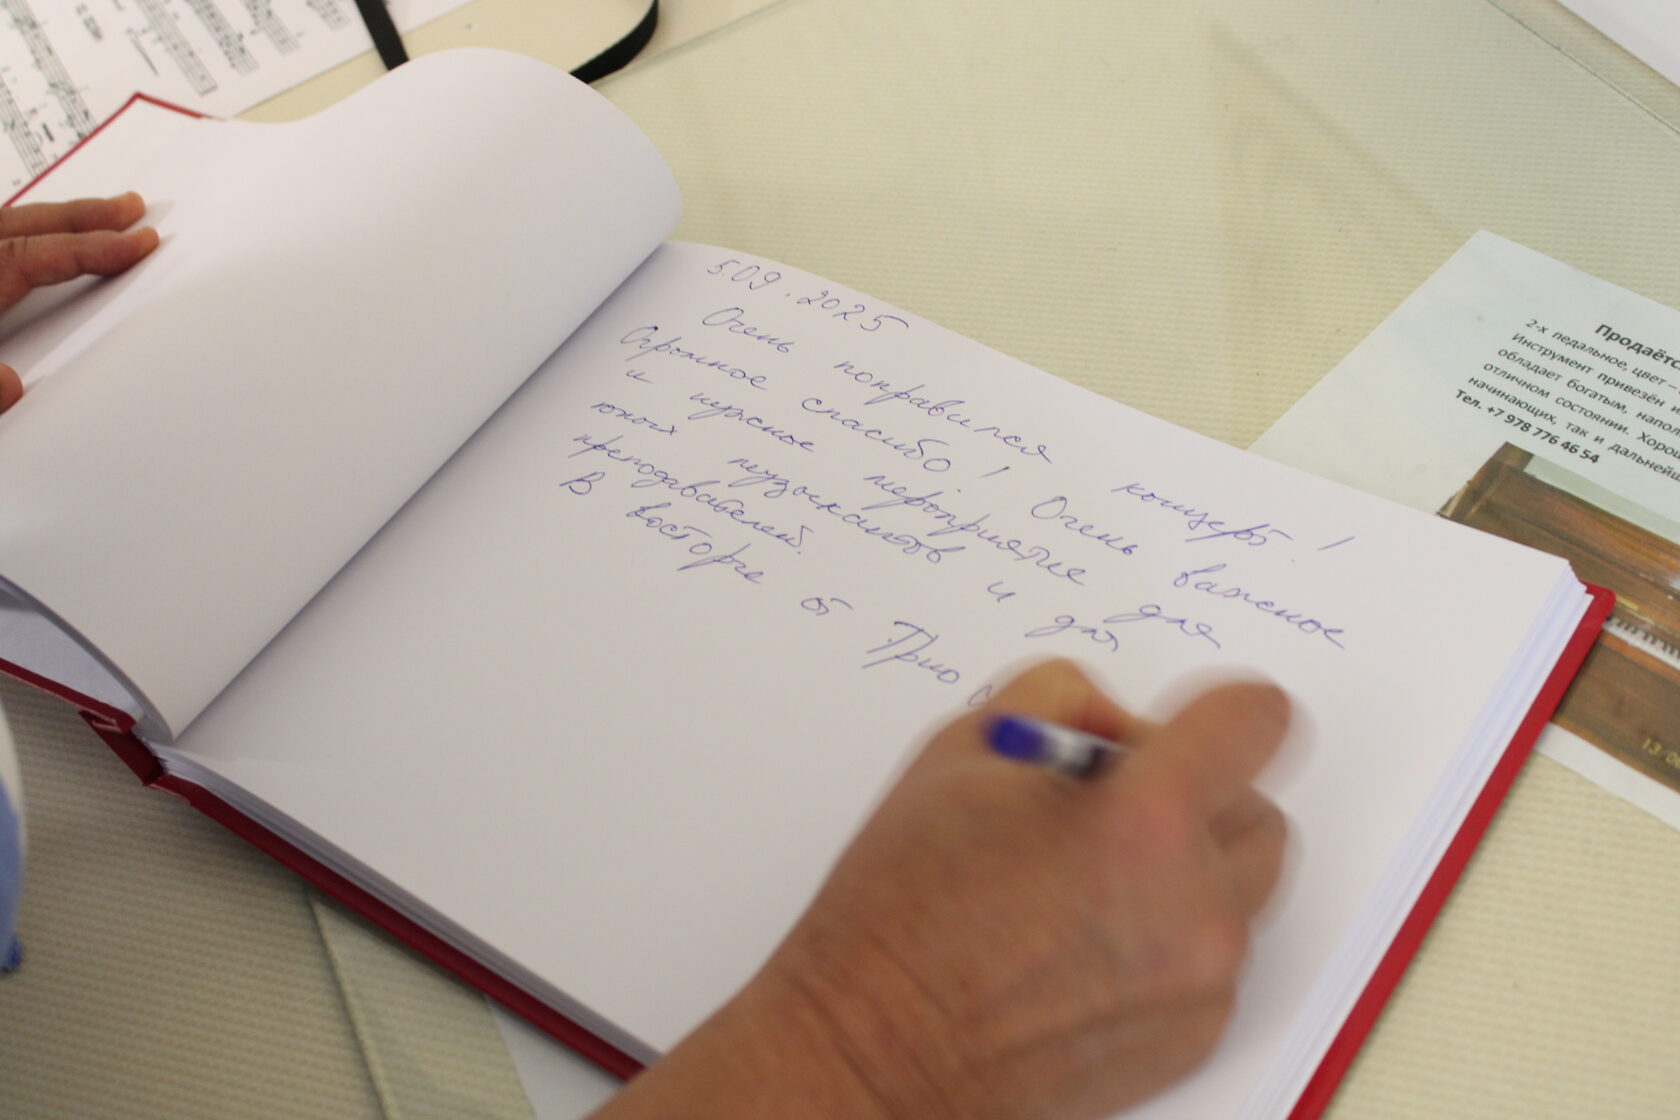 5.09.2025
Очень понравился концерт!
Огромное спасибо! Очень важное
и нужное мероприятие для
юных музыкантов и для
преподавателей.
В восторге от Трио
Продаётс
2-х педальное, цвет
Инструмент привезён и
обладает богатым, напол
отличном состоянии. Хорош
начинающих, так и дальнейш
Тел. +7 978 776 46 54